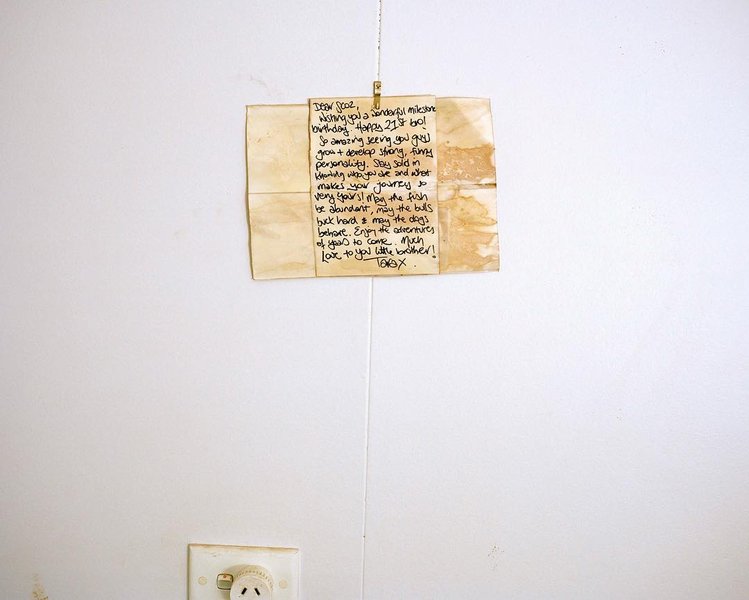 Dear Scoz,
Wishing you a wonderful milestone
birthday. Happy 21st bro!
So amazing seeing you guys
grow + develop strong, funny
personality. Stay solid in
knowing who you are and what
makes your journey so
very yours! May the fish
be abundant, may the bulls
buck hard & may the dogs
behave. Enjoy the adventures
of years to come. Much
Love to you little brother!
Tara X